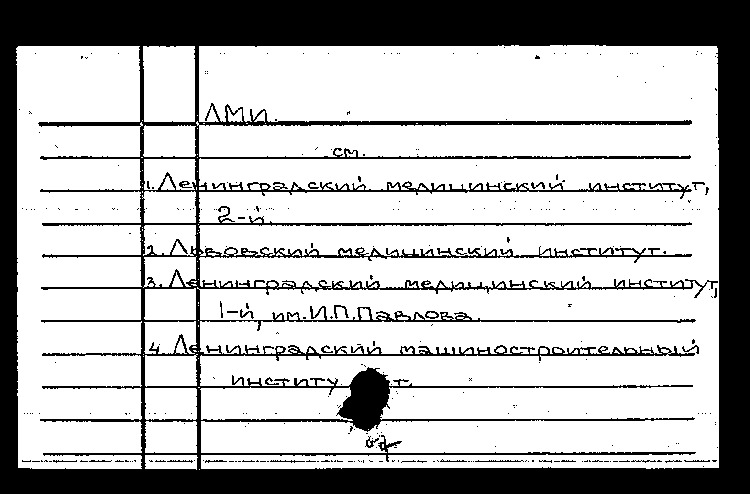 ЛМИ.
см.
1. Ленинградский медицинский институт,
2-й.
2. Львовский медицинский институт.
3. Ленинградский медицинский институт,
1-й, им. И.П. Павлова.
4. Ленинградский машиностроительный
институт.